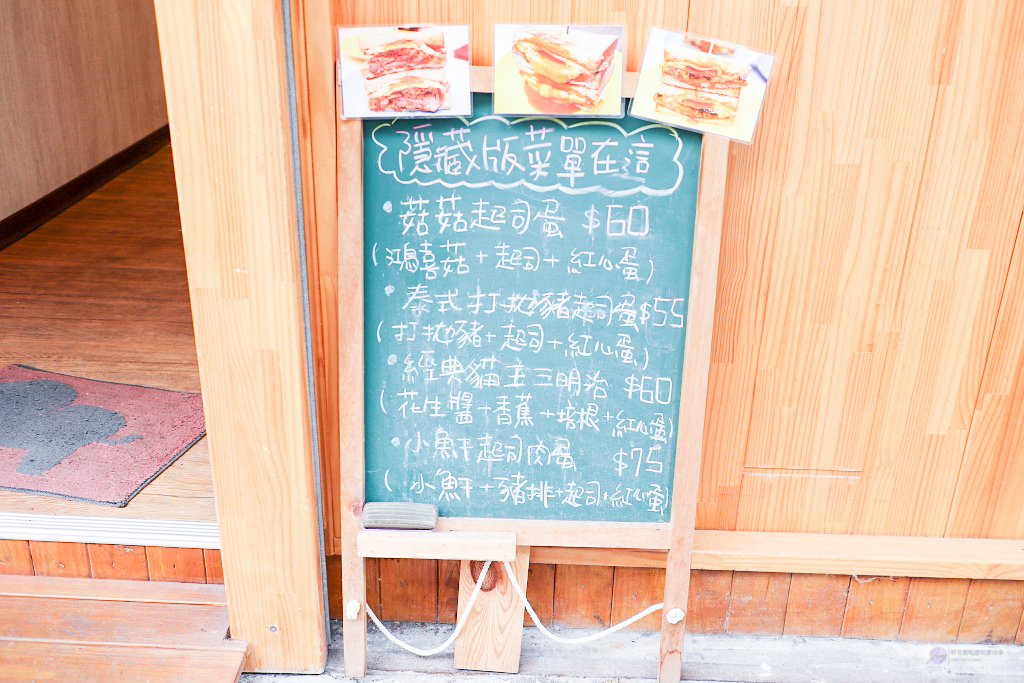 隱藏版菜單在這
• 菇菇起司蛋 $60
(鴻喜菇+起司+紅心蛋)
• 泰式打拋豬起司蛋$55
(打拋豬+起司+紅心蛋)
• 經典貓王三明治 $60
(花生醬+香蕉+培根+紅心蛋)
• 小魚干起司肉蛋 $75
(小魚干+豬排+起司+紅心蛋)